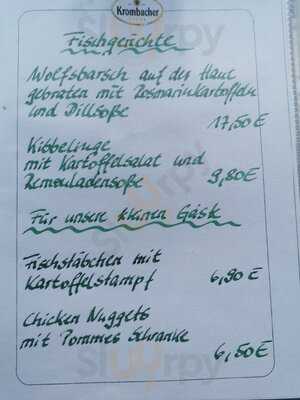 Krombacher
Fischgerichte
Wolfsbarsch auf der Haut
gebraten mit Rosmarinkartoffeln
und Dillsoße
17,50 €
Kibbelinge
mit Kartoffelsalat und
Remouladensoße 9,80 €
Für unsere kleinen Gäste
Fischstäbchen mit
Kartoffelstampf 6,90 €
Chicken Nuggets
mit Pommes Schranke
6,50 €